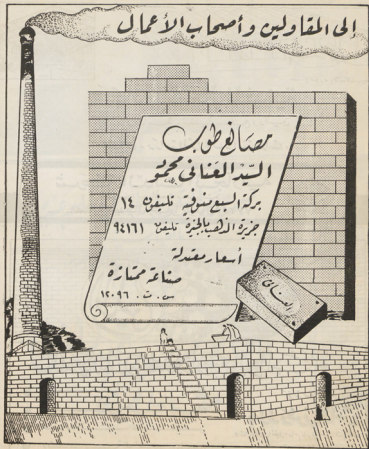 إلى المقاولين وأصحاب الأعمال
مصانع طوب
السيد العنانى محمود
بركة السبع منوفية تليفون ١٤
جزيرة الذهب بالجيزة تليفون ٩٤١٦١
أسعار معتدلة
صناعة ممتازة
س . ت . ١٢٠٩٦
العنانى